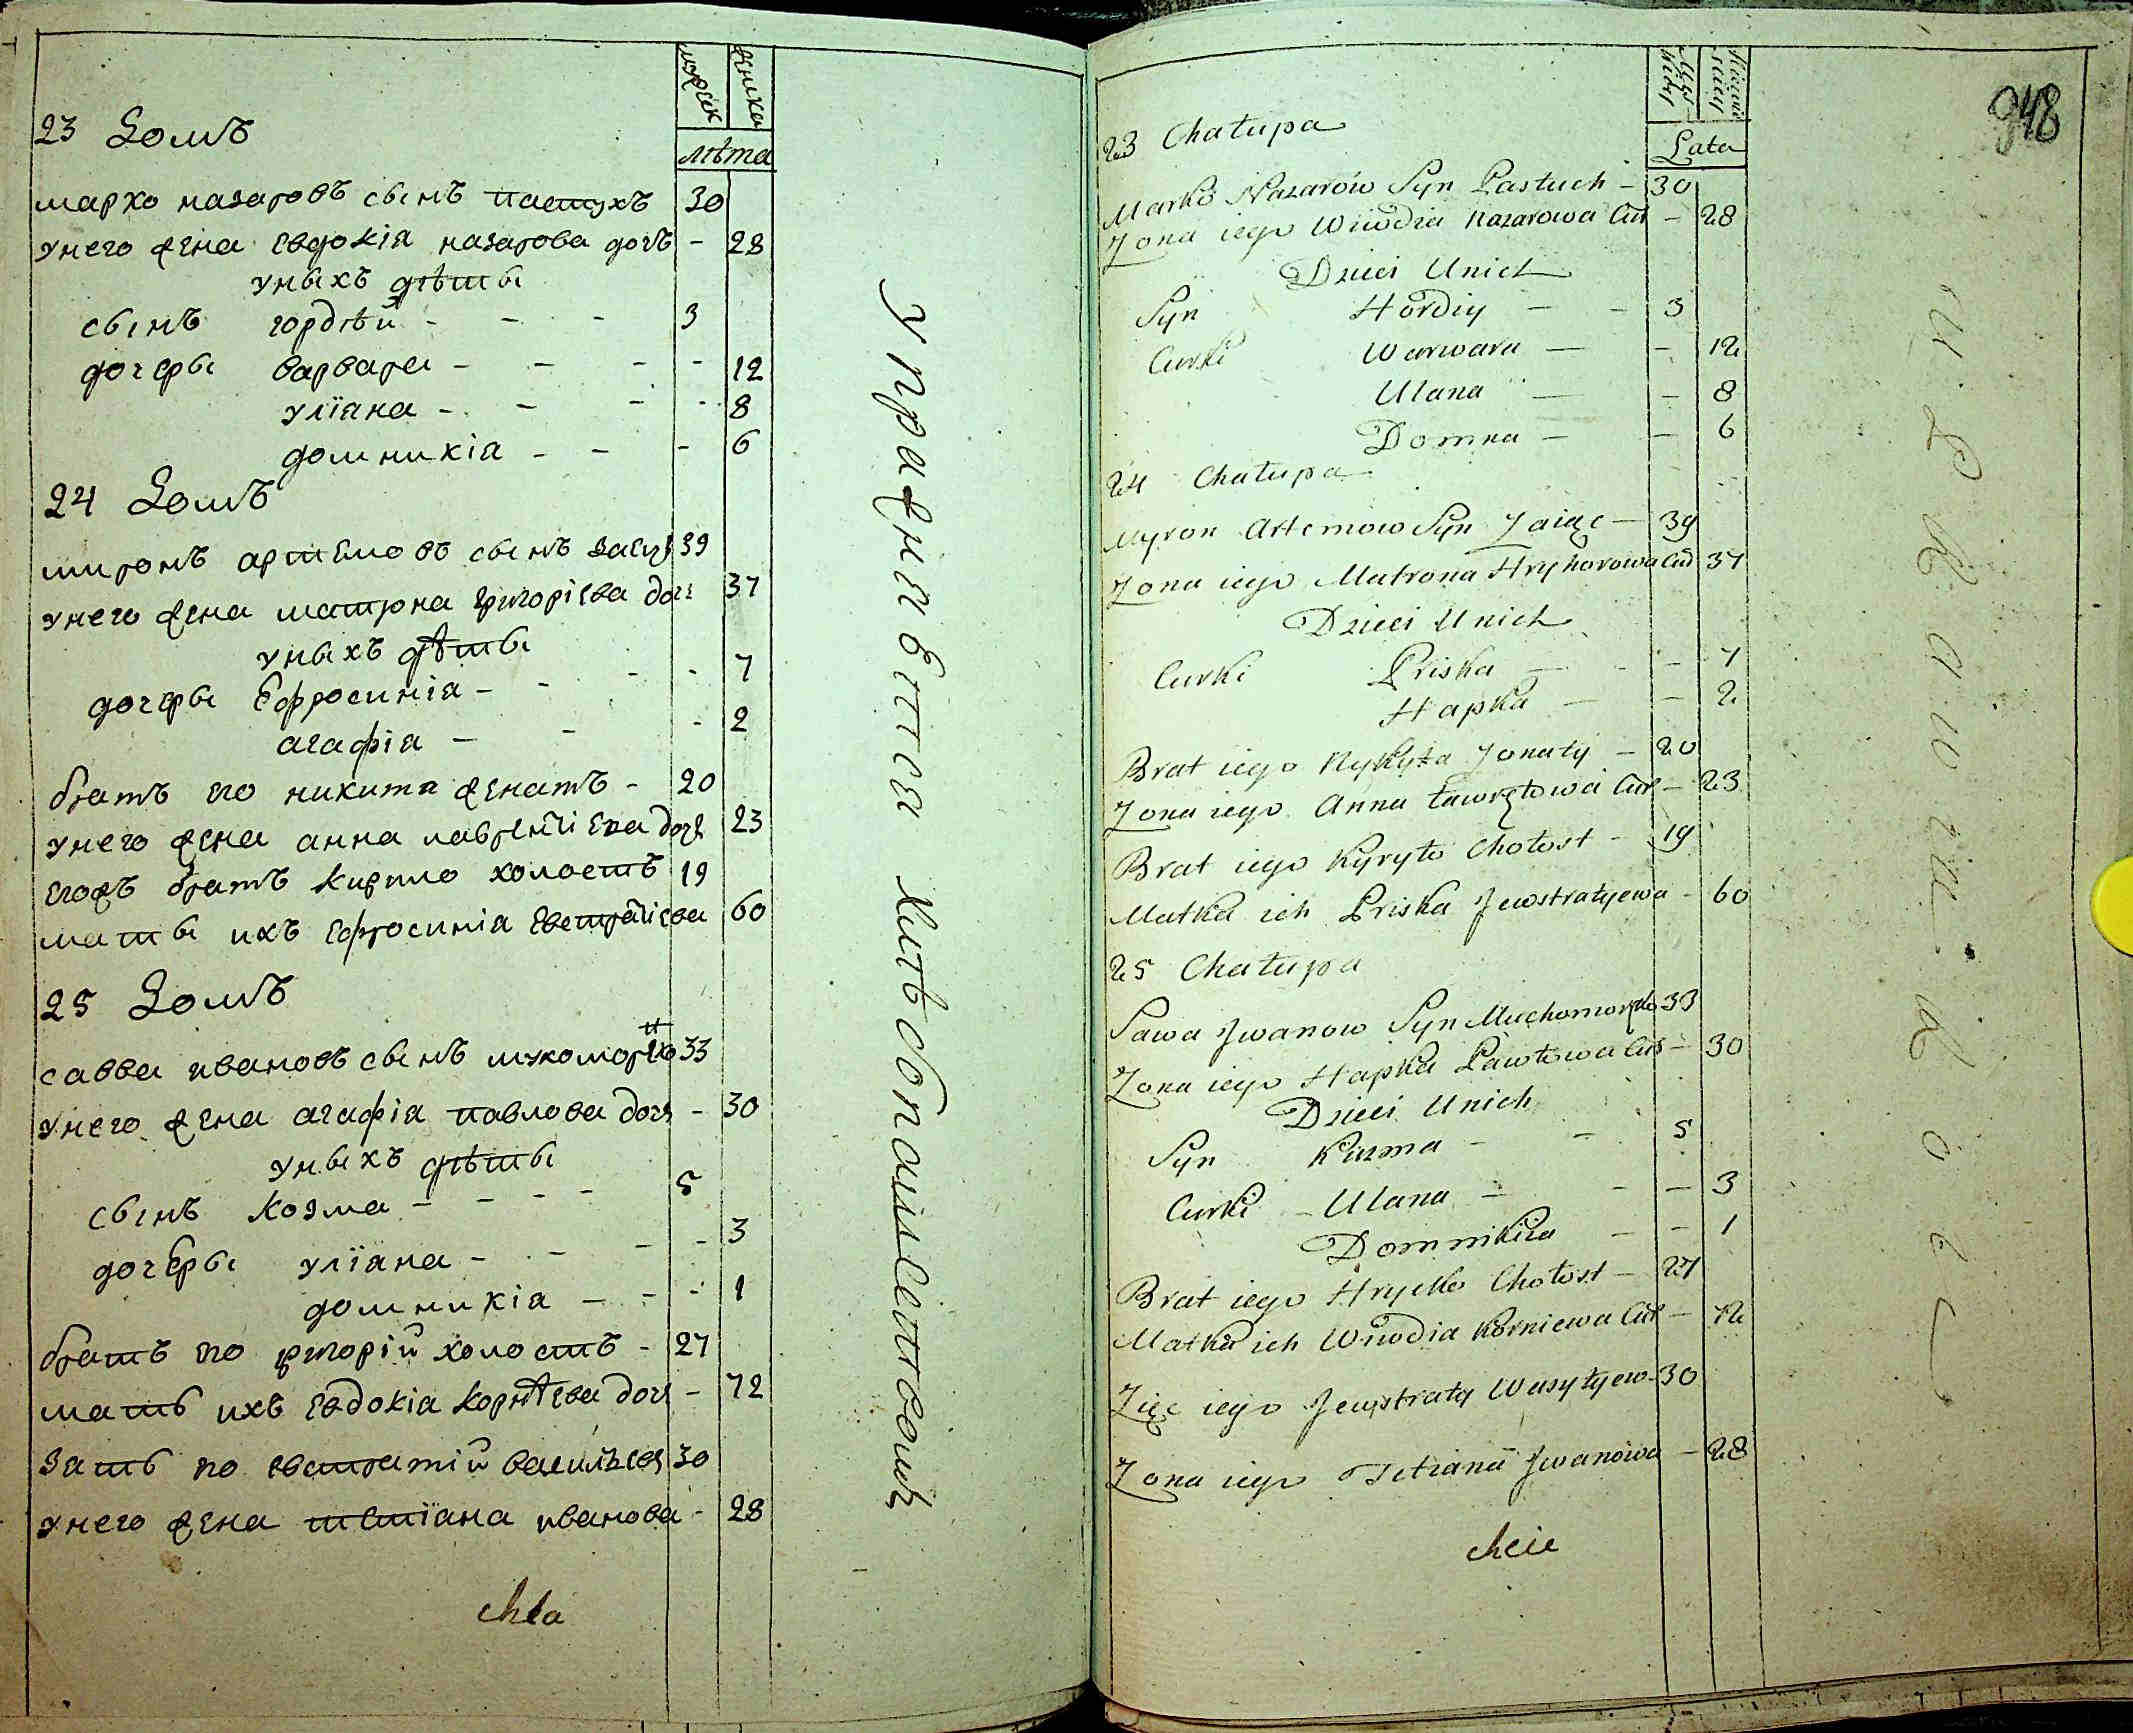 мужеск женска
лѣта
23 Домъ
марко назаровъ сынъ пастухъ 30
унего жена евдокіа назарова дочъ - 28
уныхъ дѣты
сынъ гордѣй - - - 3
дочеры варвара - - - 12
уліана - - - - 8
домникіа - - - 6
24 Домъ
миронъ артемовъ сынъ заецъ 39
унего жена матрона григоріева доч 37
уныхъ дѣты
дочеры Ефросиніа - - - - 7
агафіа - - - 2
братъ его никита женатъ - 20
унего жена анна лаврентіева доч 23
егожъ братъ кирило холостъ 19
маты ихъ ефросиніа евстратіева 60
25 Домъ
савва ивановъ сынъ мухоморко 33
унего жена агафіа павлова доч - 30
уныхъ дѣты
сынъ козма - - - - 5
дочеры уліана - - - - 3
домникіа - - - 1
братъ его григорій холостъ - 27
мать ихъ евдокіа корнѣева доч - 72
зать его евстратій васильев 30
унего жена тетіана иванова - 28
упражнается хлѣбопашествомъ
948
Męzki Zenski
Lata
23 Chałupa
Marko Nazarów Syn Pastuch - 30
Zona iego Wiwdia Nazarowa Cur - 28
Dzieci Unich
Syn Hordiy - - 3
Curki Warwara - - 12
Ulana - - 8
Domna - - 6
24 Chałupa
Myron Artemow Syn Zaiąc - 39
Zona iego Matrona Hryhorowa Cur 37
Dzieci Unich
Curki Priska - - - 7
Hapka - - 2
Brat iego Nykyta Zonaty - 20
Zona iego Anna Ławrętowa Cur - 23
Brat iego Kyryło Chołost - 19
Matka ich Priska Jewstratyewa - 60
25 Chałupa
Sawa Jwanow Syn Muchomorko 33
Zona iego Hapka Pawłowa Cur - 30
Dzieci Unich
Syn Kuzma - - 5
Curki - Ulana - - - 3
Domnikia - - 1
Brat iego Hrycko Chołost - 27
Matka ich Wiwdia Korniewa Cur - 72
Zięc iego Jewstraty Wasylyew - 30
Zona iego Tetiana Jwanowa - 28